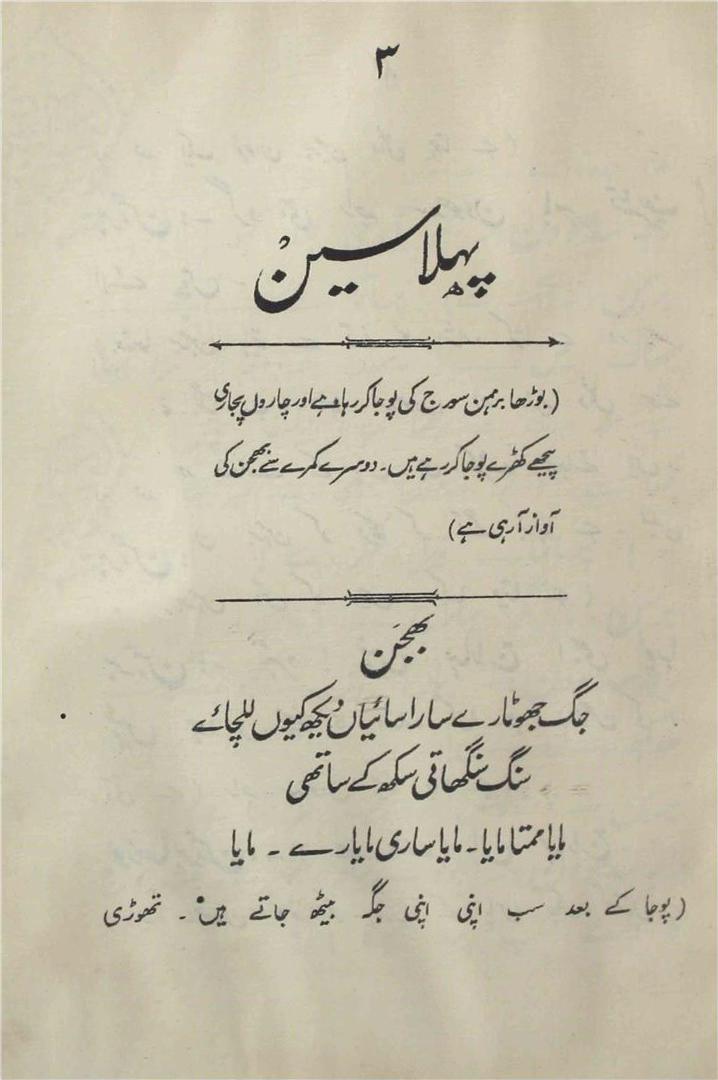 ۳
پہلا سین
(بوڑھا برہمن سورج کی پوجا کر رہا ہے اور چاروں پجاری
پیچھے کھڑے پوجا کر رہے ہیں۔ دوسرے کمرے سے بھجن کی
آواز آ رہی ہے)
بھجن
جگ جھوٹا رے سارا سائیاں دیکھ کیوں للچائے
سنگ سنگھاتی سکھ کے ساتھی
مایا ممتا مایا۔ مایا ساری مایا رے ۔ مایا
(پوجا کے بعد سب اپنی اپنی جگہ بیٹھ جاتے ہیں۔ تھوڑی